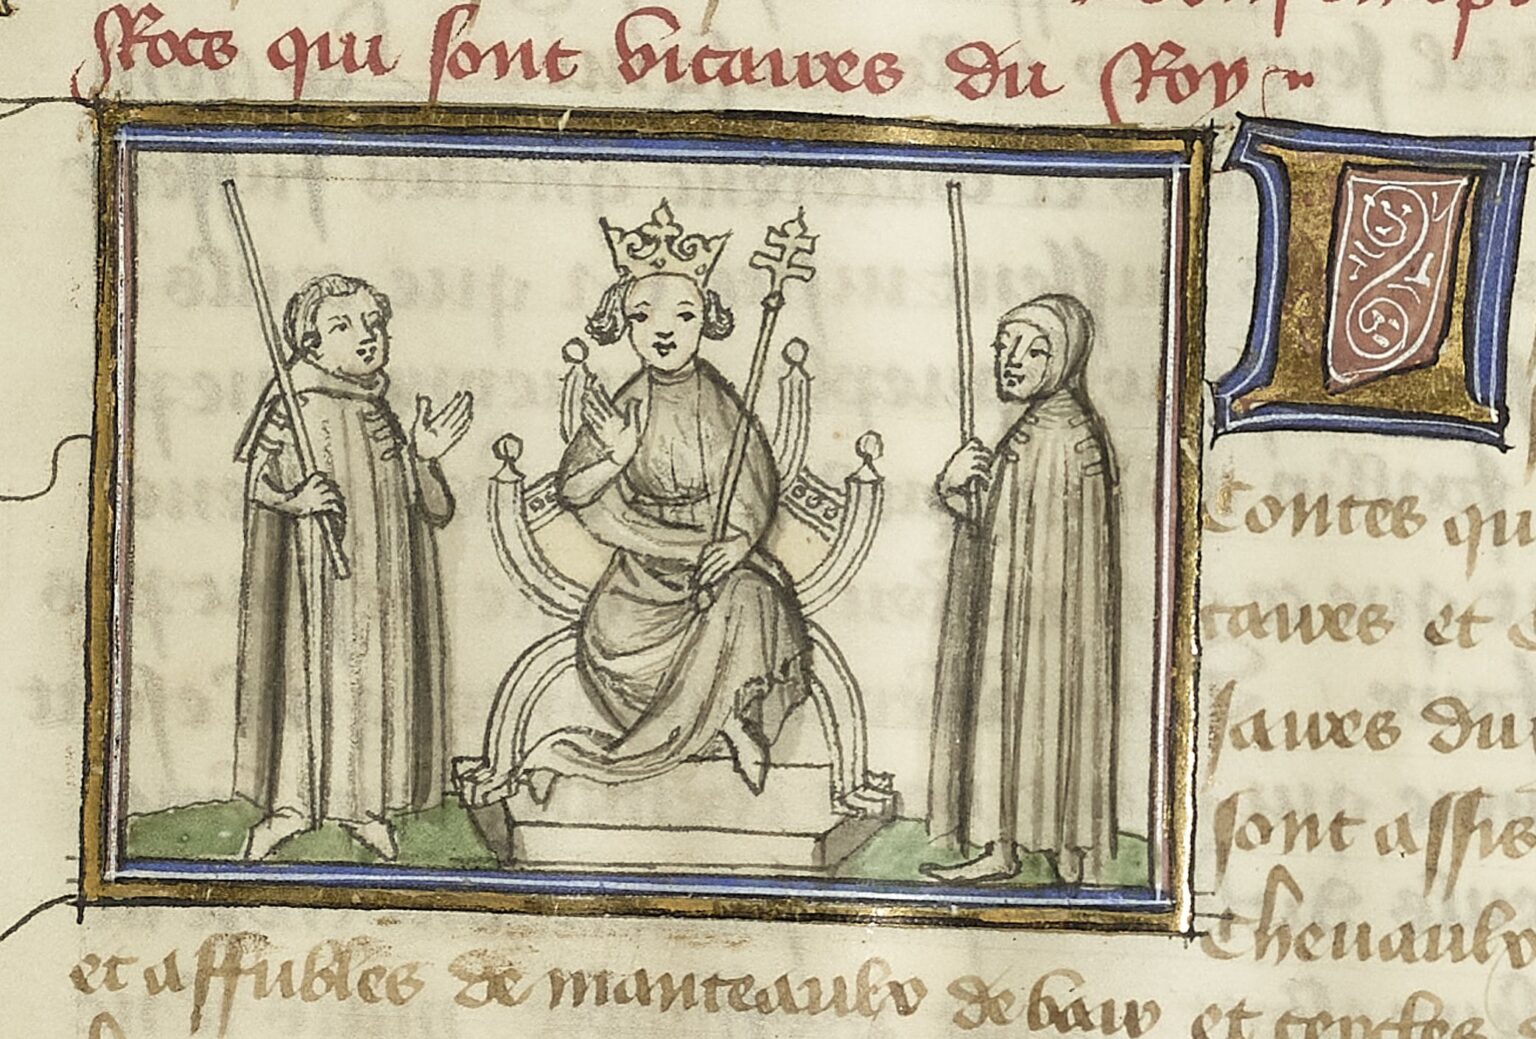 Rocs qui sont vicaires du Roy
L
Contes qu
caires et
laires du
sont assis
Cheuaulx
et affubles de manteaulx de vair et